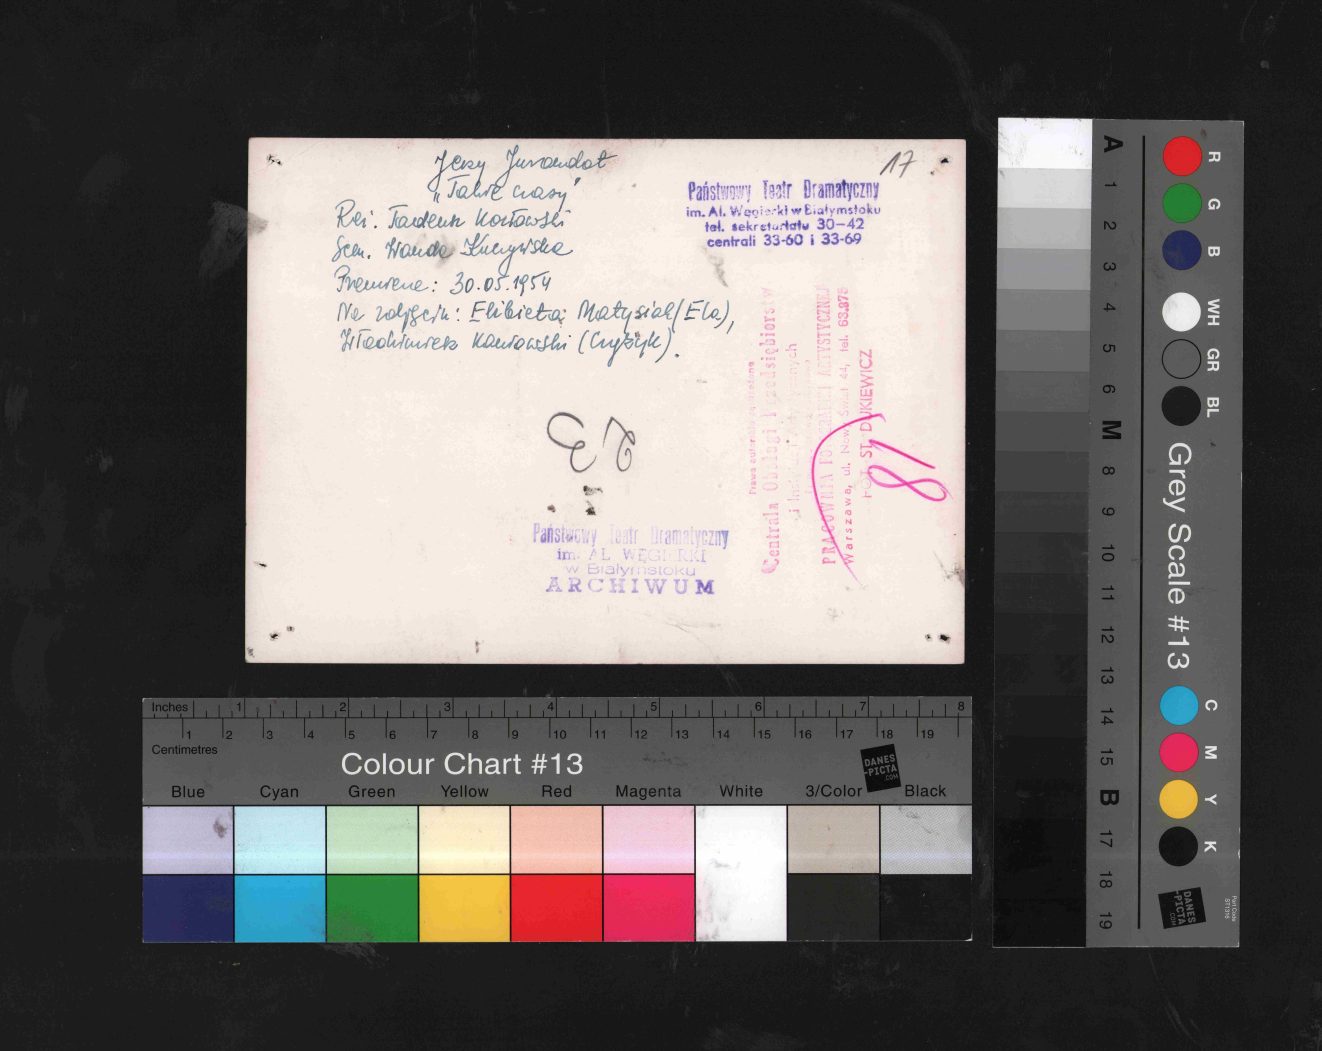 Jerzy Jurandot
"Takie czasy"
Reż. Tadeusz Kozłowski
Scen. Wanda
Premiera: 30.05.1954
Na zdjęciu: Elżbieta Matysiak (Ela),
Włodzimierz (Czyżyk).
17
Państwowy Teatr Dramatyczny
im. Al. Węgierki w Białymstoku
tel. sekretariatu 30-42
centrali 33-60 i 33-69
23
Państwowy Teatr Dramatyczny
im. AL. WĘGIERKI
w Białymstoku
ARCHIWUM
Prawa autorskie zastrzeżone
Centrala Obsługi Przedsiębiorstw
i
PRACOWNIA FOTOGRAFIKI ARTYSTYCZNEJ
Warszawa, ul. Nowy Świat 44, tel. 63.875
FOT. ST. DUKIEWICZ
18
Inches 1 2 3 4 5 6 7 8
1 2 3 4 5 6 7 8 9 10 11 12 13 14 15 16 17 18 19
Centimetres
Colour Chart #13
DANES
-PICTA
.COM
Blue Cyan Green Yellow Red Magenta White 3/Color Black
A 1 2 3 4 5 6 M 8 9 10 11 12 13 14 15 B 17 18 19
R G B WH GR BL
Grey Scale #13
C M Y K
DANES
-PICTA
.COM
Part Code
ST1316